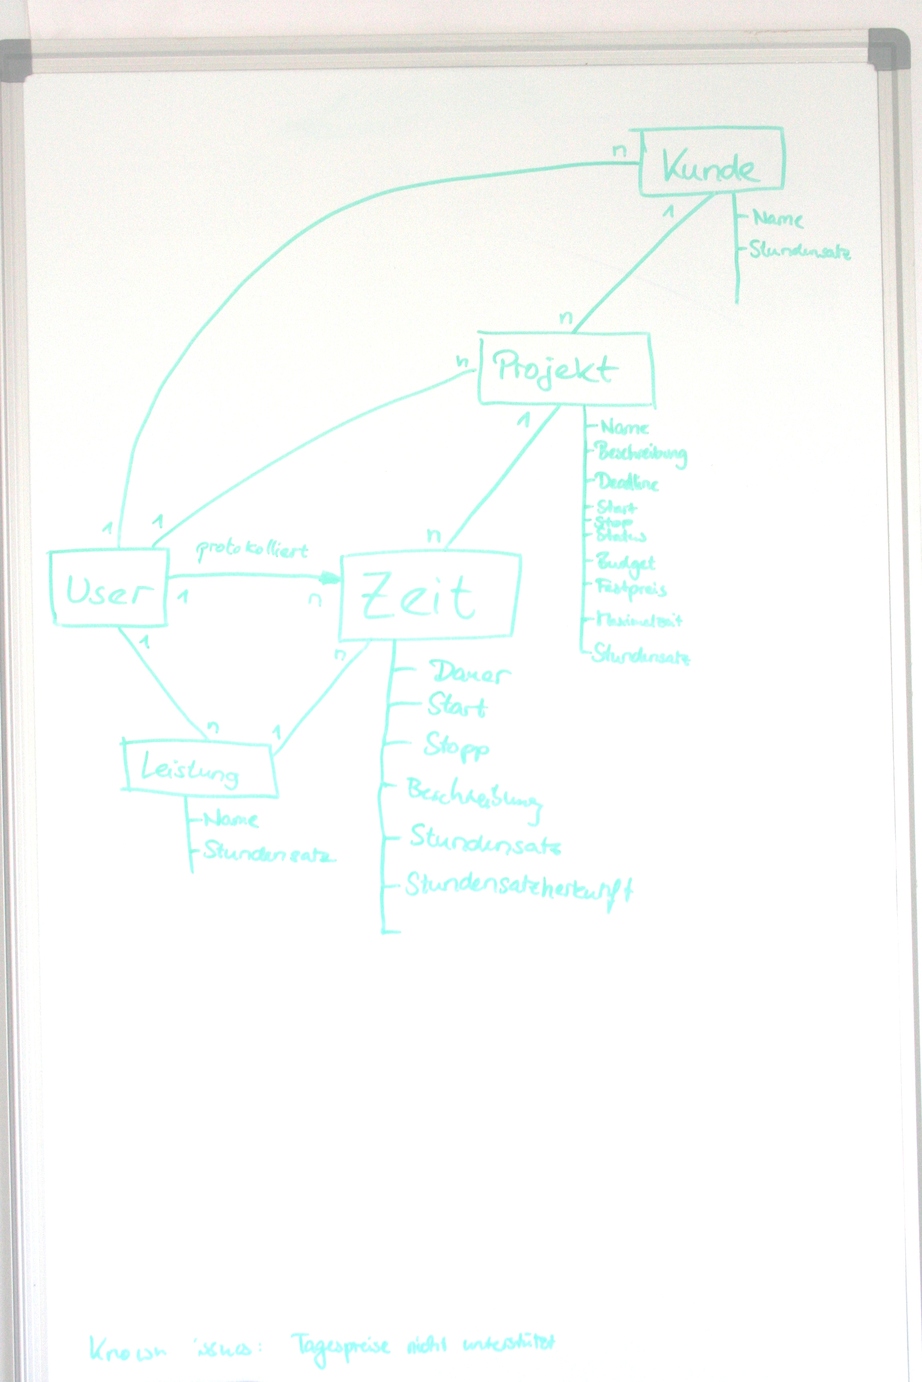 n
Kunde
1
Name
Stundensatz
n
n
Projekt
1
Name
Beschreibung
Deadline
Start
Stop
Status
Budget
Festpreis
Maximalzeit
Stundensatz
1
1
n
protokolliert
User
1
n
Zeit
1
n
n
1
Dauer
Start
Stopp
Beschreibung
Stundensatz
Stundensatzherkunft
Leistung
Name
Stundensatz
Known issues: Tagespreise nicht unterstützt